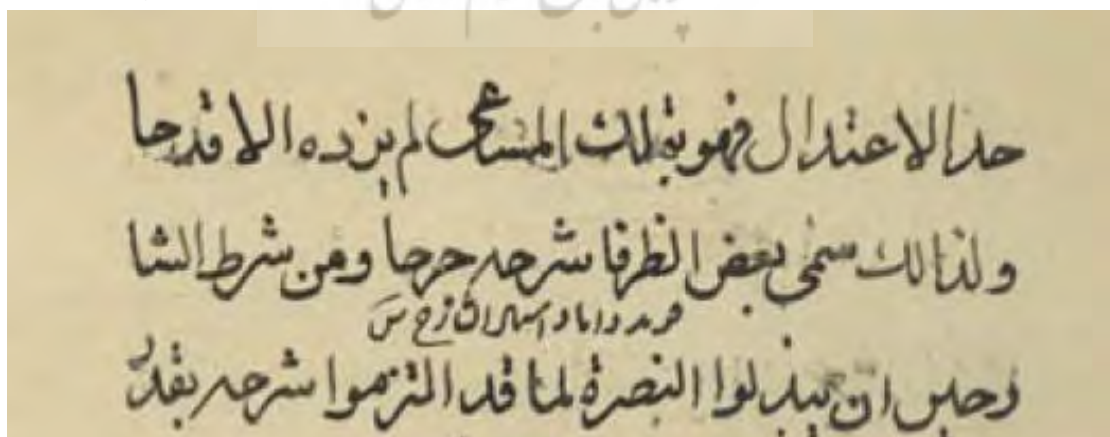 حد الاعتدال فهو بتلك المساعى لم يزده الا قدحا
ولذالك سمى بعض الظرفا شرحه جرحا ومن شرط الشا
رحين ان يبذلوا النصرة لما قد التزموا شرحه بقدر